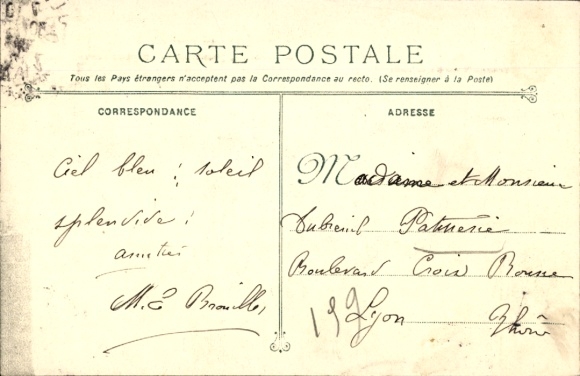 CARTE POSTALE
Tous les Pays étrangers n'acceptent pas la Correspondance au recto. (Se renseigner à la Poste)
CORRESPONDANCE
Ciel bleu ! soleil
splendide !
amitiés
M. E
ADRESSE
Madame et Monsieur
Dubreuil Patisserie
Boulevard Croix Rousse
159 Lyon Rhône